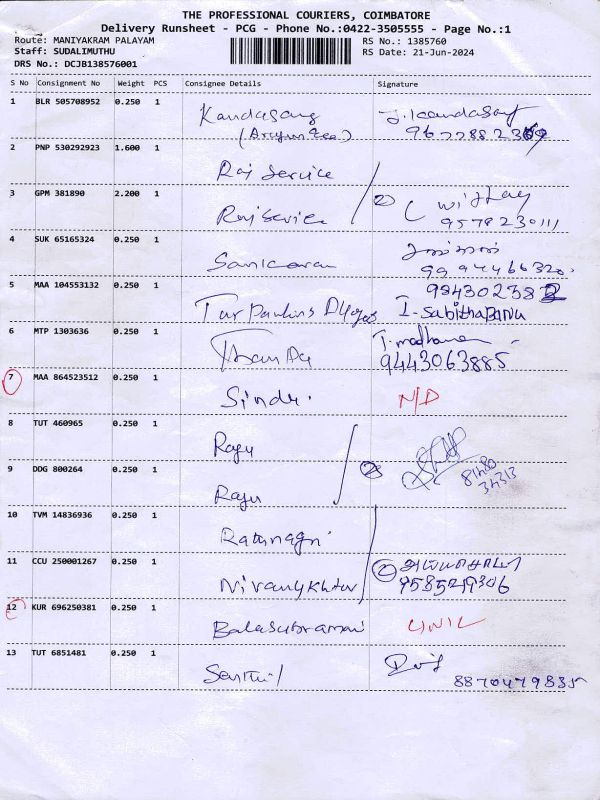 THE PROFESSIONAL COURIERS, COIMBATORE
Delivery Runsheet - PCG - Phone No.:0422-3505555 - Page No.:1
Route: MANIYAKRAM PALAYAM
RS No.: 1385760
Staff: SUDALIMUTHU
RS Date: 21-Jun-2024
DRS No.: DCJB138576001
S No Consignment No Weight PCS Consignee Details Signature
1 BLR 505708952 0.250 1 Kandasamy J. Kandasamy
9677882369
2 PNP 530292923 1.600 1 Raj Service
3 GPM 381890 2.200 1 Raj Service 2
9578230111
4 SUK 65165324 0.250 1 Sankaran
9994466320
5 MAA 104553132 0.250 1 Tarpaulins I-SabithaBanu
984302382
6 MTP 1303636 0.250 1 T. madhavan
9443063885
7 MAA 864523512 0.250 1 Sindu. N/D
8 TUT 460965 0.250 1 Raju
9 DDG 800264 0.250 1 Raju 2
81480
34313
10 TVM 14836936 0.250 1 Ratnagri
11 CCU 250001267 0.250 1 2
9585219306
12 KUR 696250381 0.250 1 Balasubramani
13 TUT 6851481 0.250 1 Senthil
8870479835